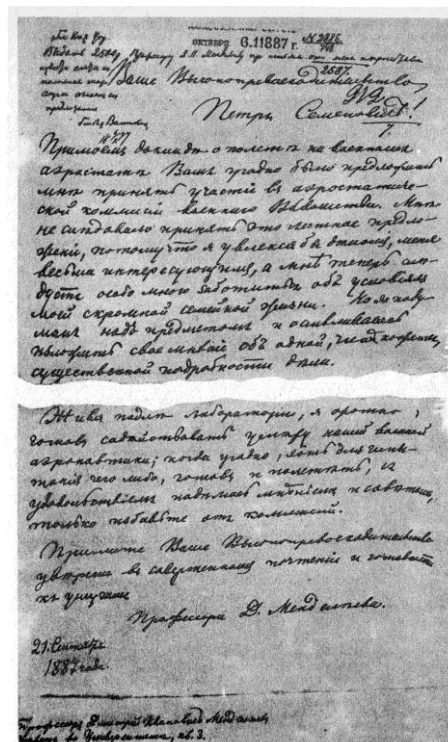 ОКТЯБРЬ 6.11887 г. № 2886
Ваше Высокопревосходительство,
Петръ Семеновичъ!
Примовъ докладъ о полетѣ на военномъ
аэростатѣ Вамъ угодно было предложить
мнѣ принять участіе въ аэростатиче-
ской коммисіи военнаго Вѣдомства. Мнѣ
не слѣдовало принять это лестное предло-
женіе, потому что я увлекся бы дѣломъ, меня
весьма интересующимъ, а мнѣ теперь слѣ-
дуетъ особо много заботиться объ условіяхъ
моей скромной семейной жизни. Но я поду-
малъ надъ предметомъ и осмѣливаюсь
изложить свое мнѣніе объ одной,
существенной подробности дѣла.
Живя подлѣ лабораторіи, я
готовъ содѣйствовать центру нашей военной
аэронавтики; когда угодно, хоть для испы-
танія чего либо, готовъ и полетѣть, съ
удовольствіемъ подѣлюсь мнѣніемъ и совѣтомъ,
только избавьте отъ коммисій.
Примите Ваше Высокопревосходительство
увѣреніе въ совершенномъ почтеніи и готовности
къ услугамъ
Профессоръ Д. Менделѣевъ.
21 Сентября
1887 года.
Профессоръ Дмитрій Ивановичъ Менделѣевъ
въ Университетѣ, кв. 3.